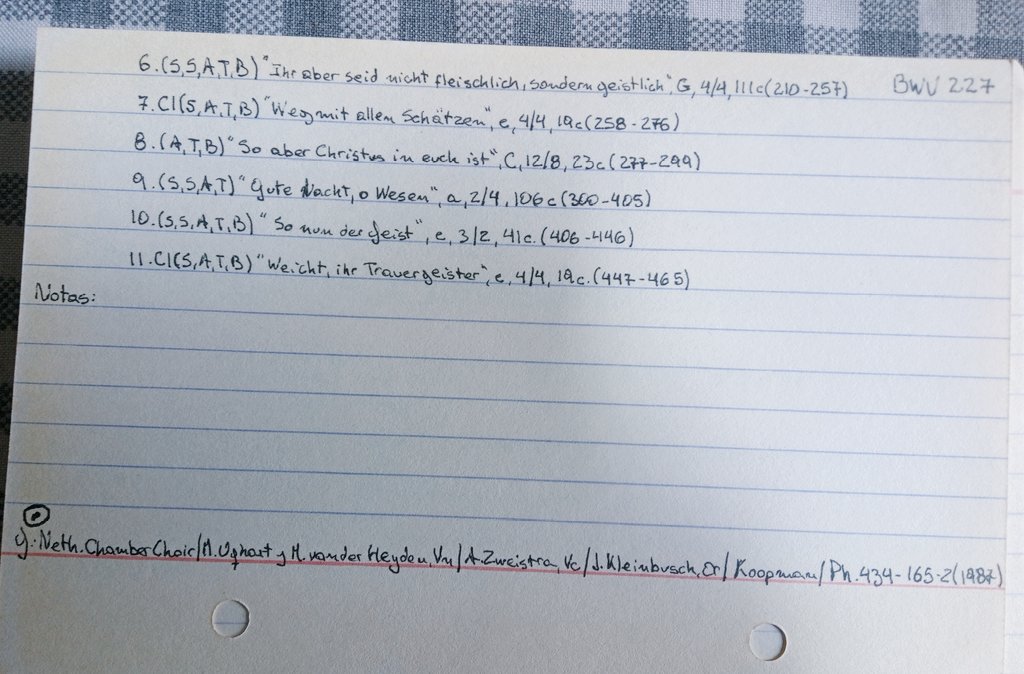 6.(S,S,A,T,B) "Ihr aber seid nicht fleischlich, sondern geistlich", G, 4/4, 111c(210-257) BWV 227
7.Cl(S,A,T,B) "Weg mit allen Schätzen", e, 4/4, 19c(258-276)
8.(A,T,B) "So aber Christus in euch ist", C, 12/8, 23c(277-299)
9.(S,S,A,T) "Gute Nacht, o Wesen", a, 2/4, 106c(300-405)
10.(S,S,A,T,B) "So nun der Geist", e, 3/2, 41c.(406-446)
11.Cl(S,A,T,B) "Weicht, ihr Trauergeister", e, 4/4, 19c.(447-465)
Notas:
g: Neth. Chamber Choir/M. y M. van der Heyden, Vn/A. Zweistra, Vc/J. Kleinbusch, Or/Koopman/Ph. 434-165-2(1987)